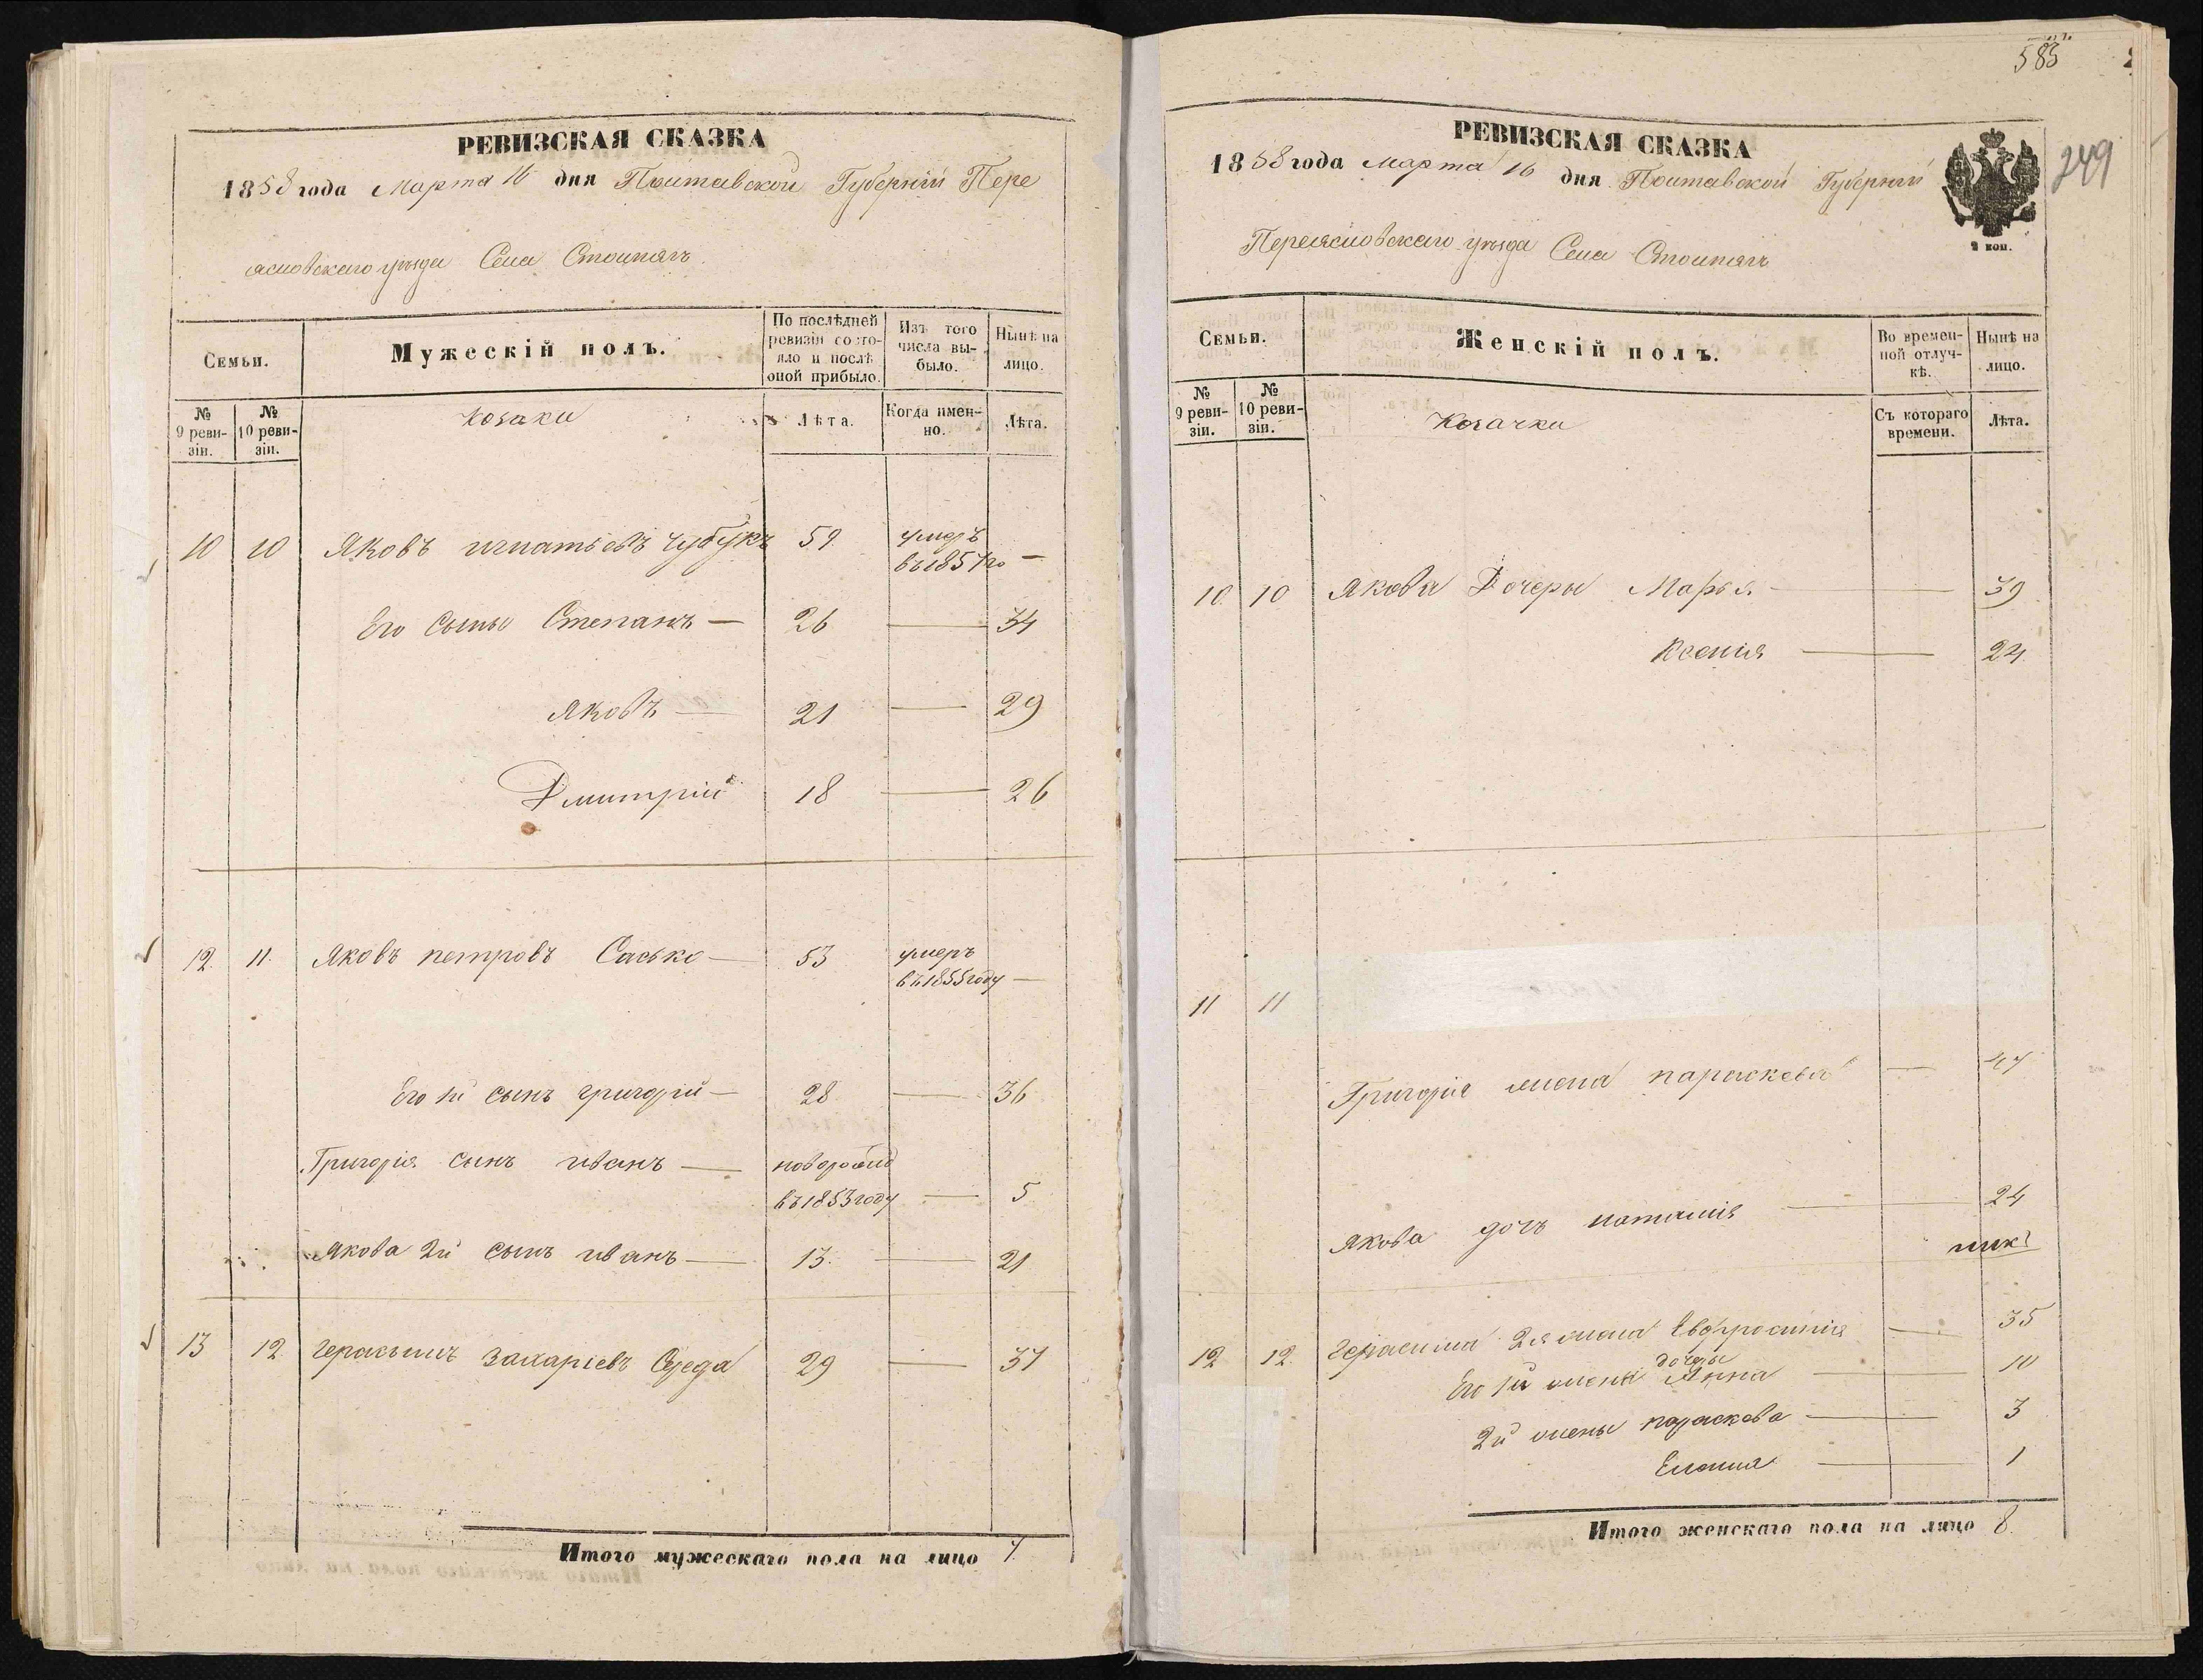 РЕВИЗСКАЯ СКАЗКА
1858 года Марта 16 дня Полтавской Губернiи Пере
яславскаго уѣзда Села Столпягъ
Семьи.
Мужескiй полъ.
По послѣдней ревизiи состо-
яло и послѣ оной прибыло.
Изъ того числа вы-
было.
Нынѣ на лицо.
№ 9 реви-
зiи.
№ 10 реви-
зiи.
Козаки
Лѣта.
Когда имен-
но.
Лѣта.
10 10 Яковъ игнатьевъ Чубукъ 59 умеръ
въ 1857го —
Его сыны Степанъ — 26 — 34
Яковъ — 21 — 29
Дмитрiй 18 — 26
12. 11. Яковъ петровъ Сасько — 53 умеръ
въ 1855 году —
Его 1й сынъ григорiй — 28 — 36
Григорiя сынъ иванъ —
въ 1853 году — 5
Якова 2й сынъ иванъ — 13. — 21
13 12 Герасимъ Захарiевъ Середа 29 — 37
Итого мужескаго пола на лицо 7.
583
249
РЕВИЗСКАЯ СКАЗКА
1858 года Марта 16 дня Полтавской Губернiи
Переяславскаго уѣзда Села Столпягъ
2 коп.
Семьи.
Женскiй полъ.
Во времен-
ной отлуч-
кѣ.
Нынѣ на лицо.
№ 9 реви-
зiи.
№ 10 реви-
зiи.
Козачки
Съ котораго времени.
Лѣта.
10. 10 Якова Дочеры Марья — 39
Ксенiя — 24
11 11
Григорiя жена параскева — 47
Якова дочь наталiя — 24
12 12. Герасима 2я жена Евфросинiя — 35
дочеры
Его 1й жены Анна — 10
2й жены параскева — 3
Елена — 1
Итого женскаго пола на лицо 8.